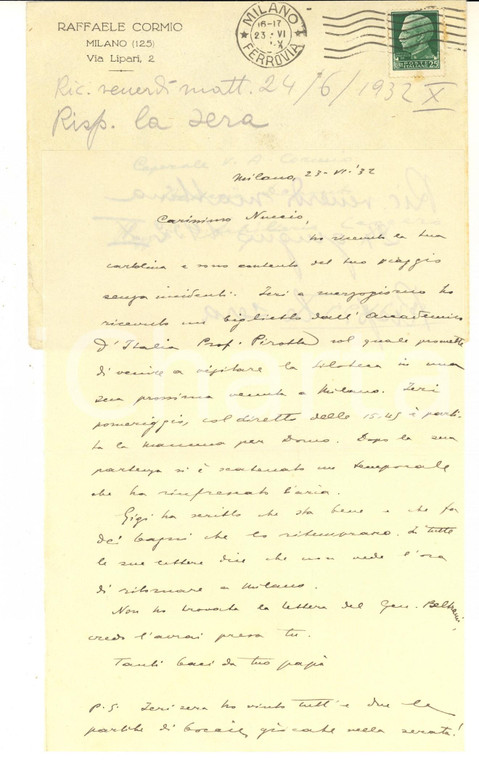 RAFFAELE CORMIO
MILANO (125)
Via Lipari, 2
MILANO
16-17
23 · VI
X
FERROVIA
Ric. venerdì matt. 24/6/1932 X
Risp. la sera
Milano, 23-VI-'32
Carissimo Nuccio,
ho ricevuto la tua
cartolina e sono contento del tuo viaggio
senza incidenti. Ieri a mezzogiorno ho
ricevuto un biglietto dall'Accademico
D'Italia Prof. Pirotta col quale promette
di venire a visitare la Siloteca in una
sua prossima venuta a Milano. Ieri
pomeriggio, col diretto delle 15.45 è parti-
ta la mamma per Domo. Dopo la sua
partenza si è scatenato un temporale
che ha rinfrescato l'aria.
Gigi ha scritto che sta bene e che fa
dei bagni che lo ritemprano. In tutte
le sue lettere dice che non vede l'ora
di ritornare a Milano.
Non ho trovato la lettera del Gen.
credo l'avrai presa tu.
Tanti baci da tuo papà
P.S. Ieri sera ho vinto tutt'e due le
partite di giocate nella serata!